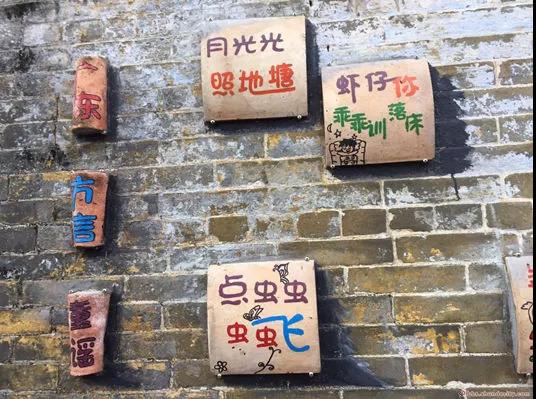 东
方言
童谣
月光光
照地塘
虾仔你
乖乖训落床
点虫虫
虫虫飞
bbs.shundecity.com